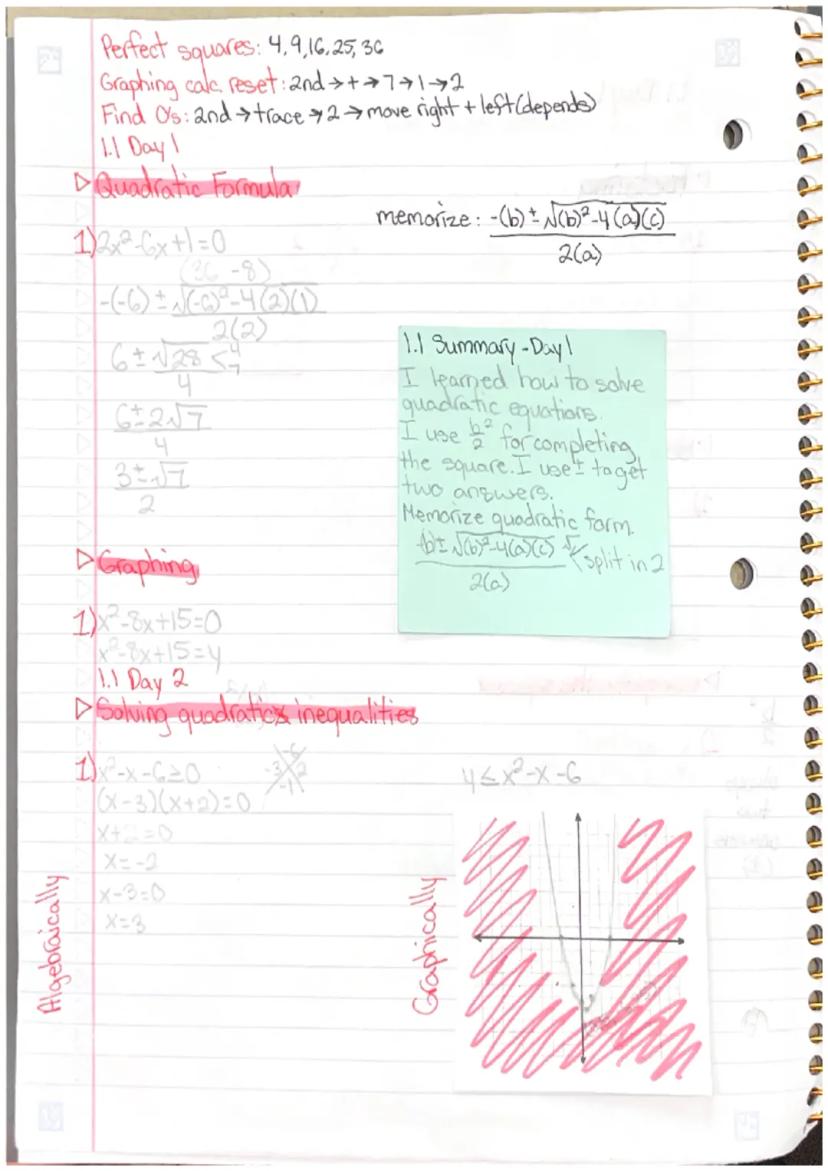 Perfect squares: 4, 9, 16, 25, 36
Graphing calc. reset: 2nd → + → 7 → 1 → 2
Find 0's: 2nd → trace → 2 → move right + left (depends)
1.1 Day 1
▷ Quadratic Formula
memorize: -(b) ± √(b)²-4(a)(c)
2(a)
1) 2x²-6x+1=0
(36 -8)
-(-6) ± √(-6)²-4(2)(1)
2(2)
6 ± √28 < 4 7
4
6±2√7
4
3±√7
2
1.1 Summary-Day 1
I learned how to solve
quadratic equations.
I use b²/2 for completing
the square. I use ± to get
two answers.
Memorize quadratic form.
-(b)± √(b)²-4(a)(c)
2(a)
√ < split in 2
▷ Graphing
1) x²-8x+15=0
x²-8x+15=y
1.1 Day 2
▷ Solving quadratic inequalities
1) x²-x-6≥0
-6
-3 2
-1
(x-3)(x+2)=0
x+2=0
x=-2
x-3=0
x=3
Algebraically
y≤x²-x-6
Graphically